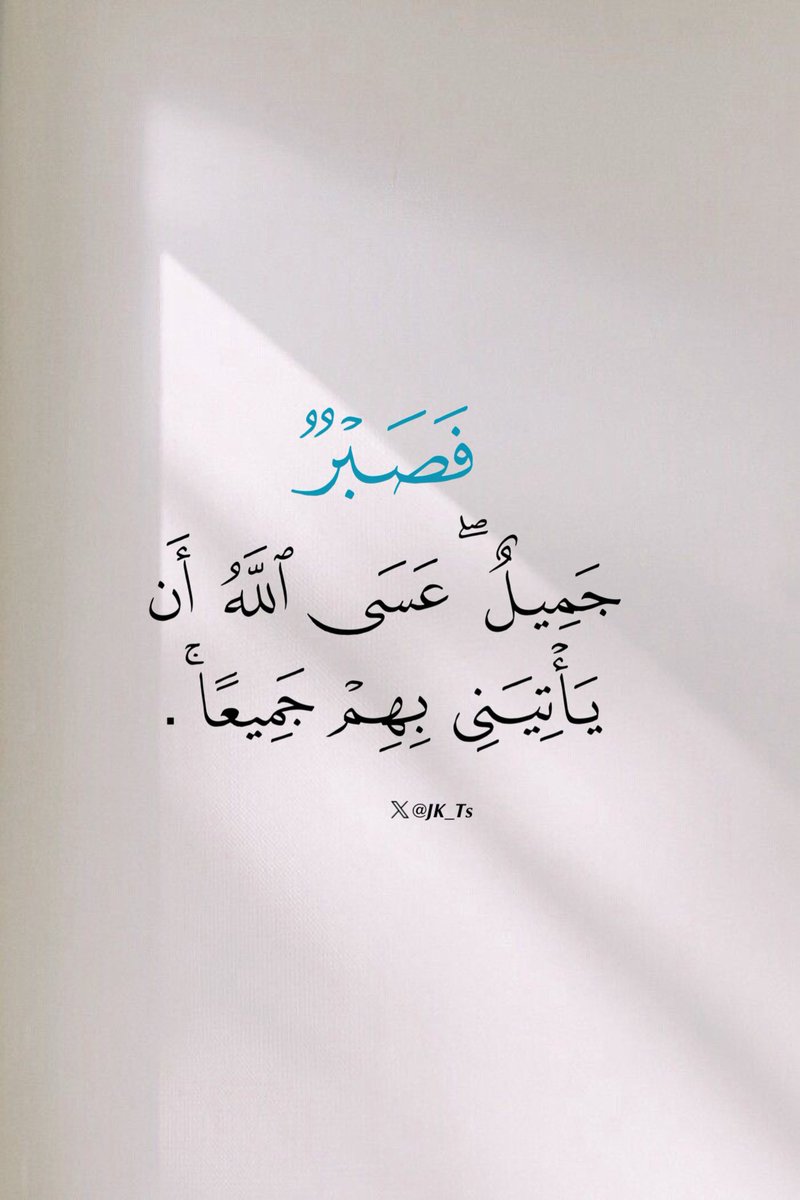 فَصَبۡرٞ
جَمِيلٌۖ عَسَى ٱللَّهُ أَن
يَأۡتِيَنِى بِهِمۡ جَمِيعًاۚ .
𝕏 @JK_Ts